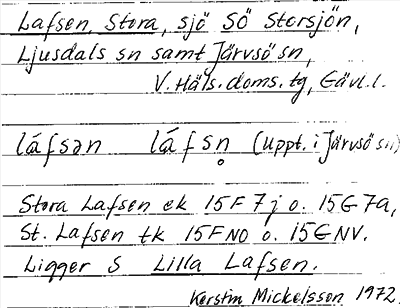 Lafsen, Stora, sjö SÖ Storsjön,
Ljusdals sn samt Järvsö sn,
V. Häls. doms. tg, Gävl. l.
láfsən láfsn̥ (uppt. i Järvsö sn)
Stora Lafsen ek 15F7j o. 15G7a,
St. Lafsen tk 15FNO o. 15GNV.
Ligger S Lilla Lafsen.
Kerstin Mickelsson 1972.